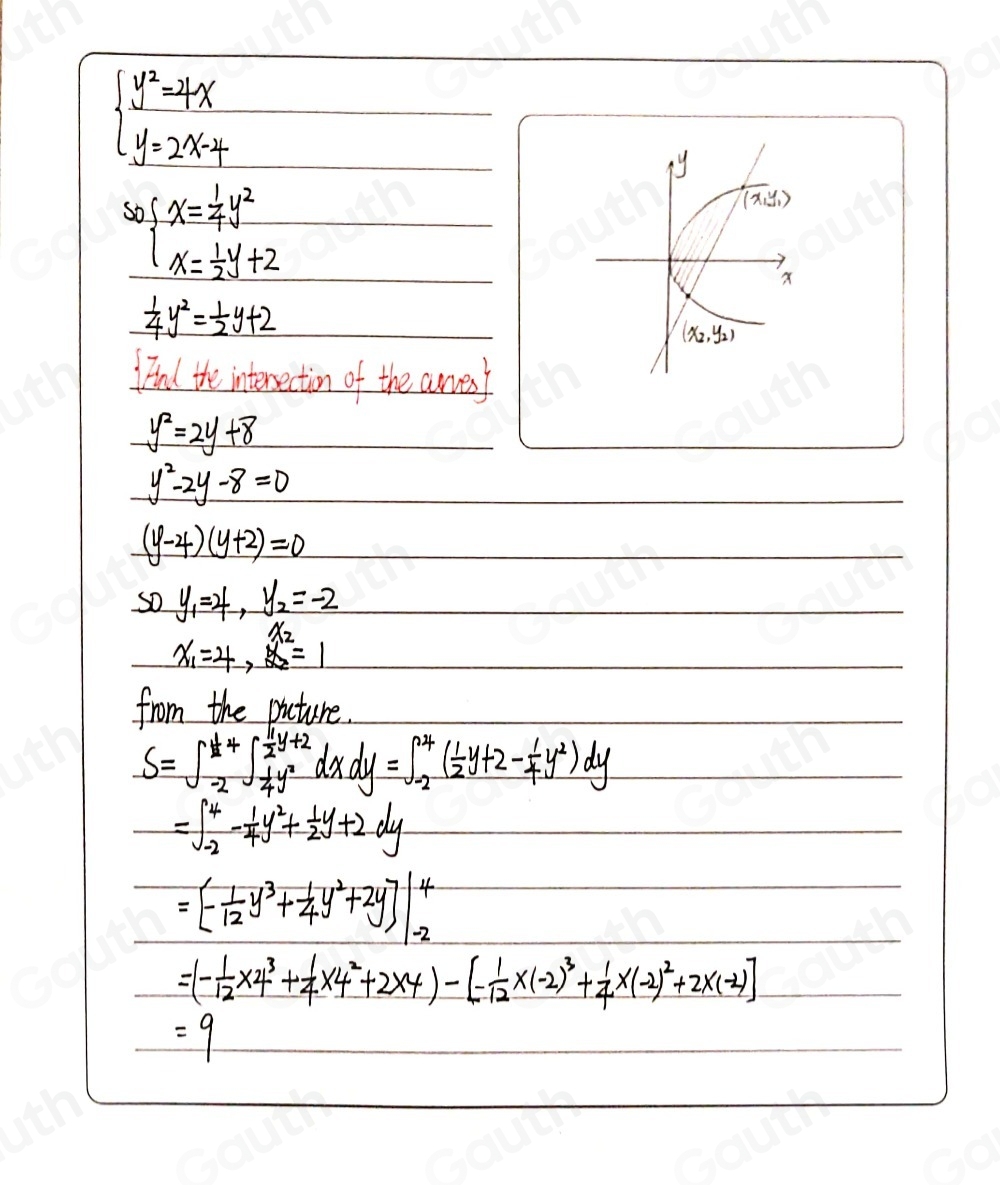 { y²=4x
y=2x-4
so { x=1/4y²
x=1/2y+2
1/4y²=1/2y+2
{Find the intersection of the curves}
y²=2y+8
y²-2y-8=0
(y-4)(y+2)=0
so y₁=4, y₂=-2
x₁=4, x₂=1
from the picture.
S=∫₋₂⁴∫_{1/4y²}^{1/2y+2} dx dy=∫₋₂⁴(1/2y+2-1/4y²)dy
=∫₋₂⁴-1/4y²+1/2y+2 dy
=[-1/12y³+1/4y²+2y]|₋₂⁴
=(-1/12×4³+1/4×4²+2×4)-[-1/12×(-2)³+1/4×(-2)²+2×(-2)]
=9
y
(x₁,y₁)
x
(x₂,y₂)
Gauth